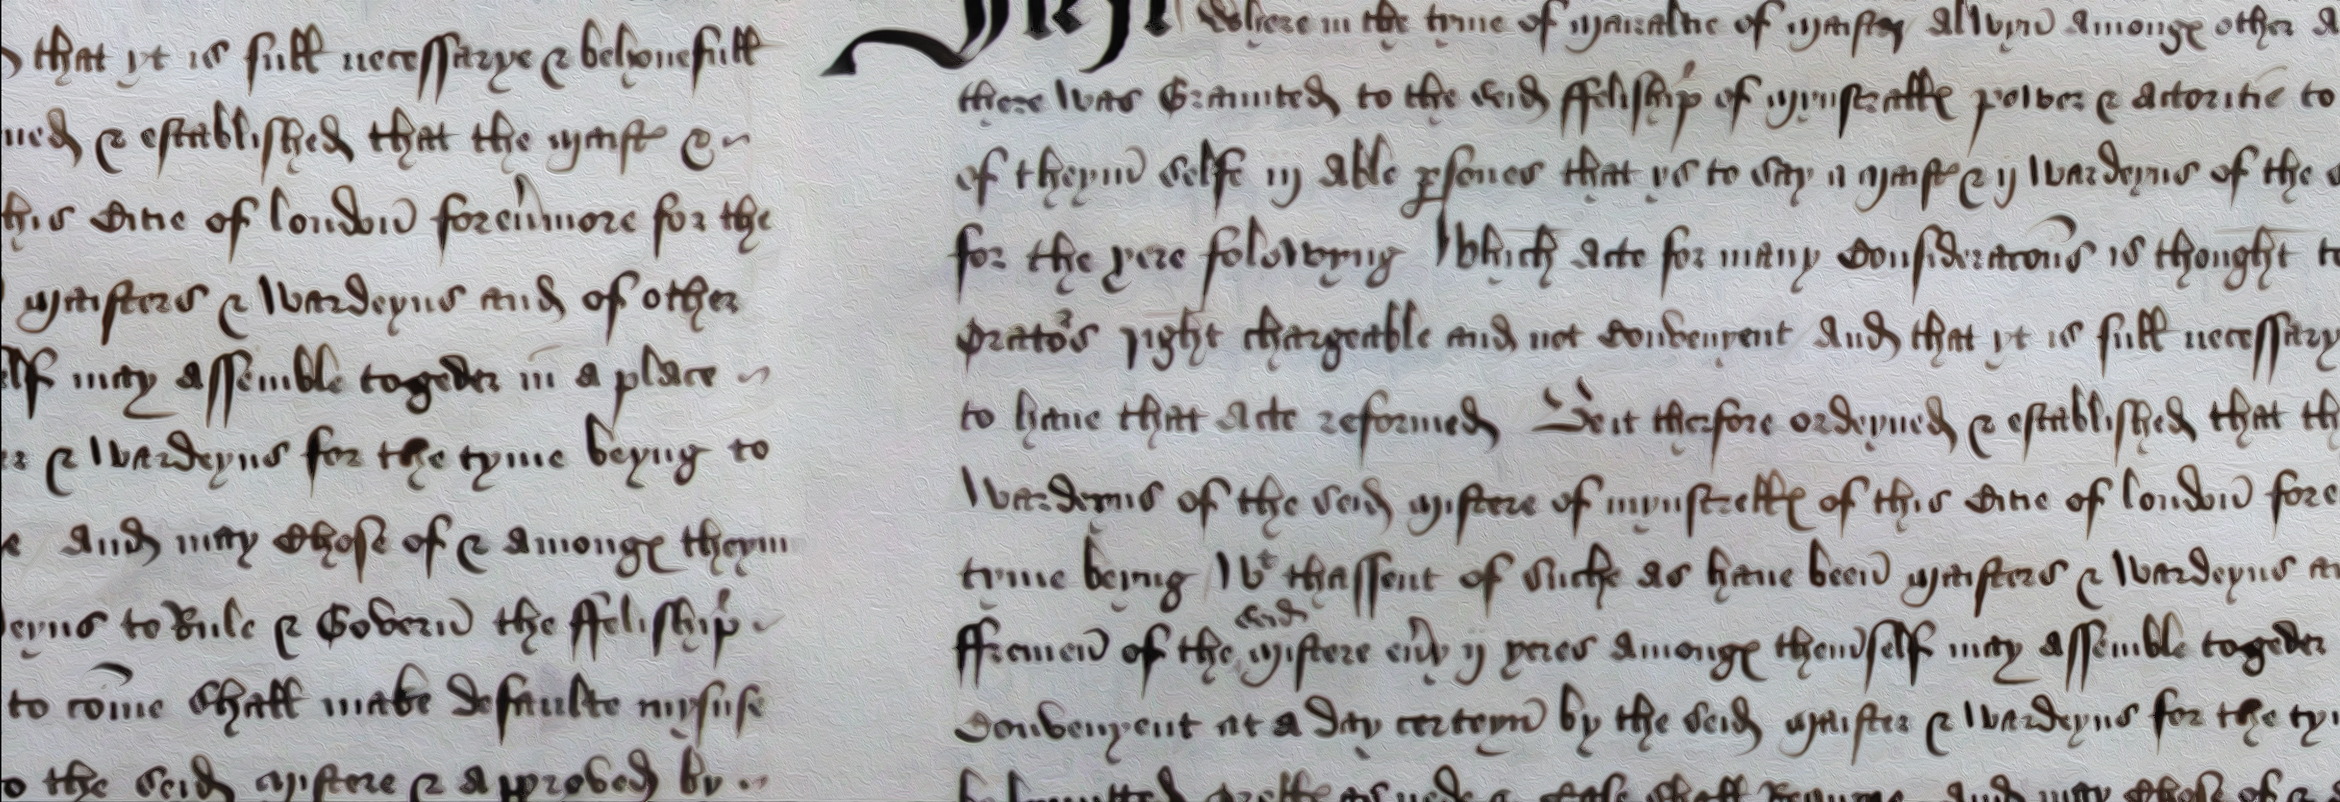 that yt is full necessarye & behouefull
ned & established that the maist &
his Citie of london foreumore for the
maisters & Wardeyns and of other
elf may assemble togeder in a place
& Wardeyns for the tyme beyng to
and may Chose of & amonge theym
eyns to Rule & Govern the ffeliship
to come Shall make defaulte mysuse
o the seid mistere & approbed by
First Where in the tyme of mairaltie of maister alwyn amonge other
there was Graunted to the seid ffeliship of mynstralle power & actoritie to
of theym selfe iij able psones that ys to say a maist & ij Wardeyns of the
for the yere folowyng Which acte for many Consideracons is thought
Orators right chargeable and not Convenyent And that yt is full necessary
to haue that Acte reformed Be it therfore ordeyned & established that th
Wardeyns of the seid mistere of mynstrelle of this Citie of london fore
tyme beyng Wt thassent of Suche as haue been maisters & Wardeyns
ffremen of the seid mistere eny ij yeres amonge themself may assemble togeder
Convenyent at a day certeyn by the seid maister & Wardeyns for the ty
shall and may Chose of &